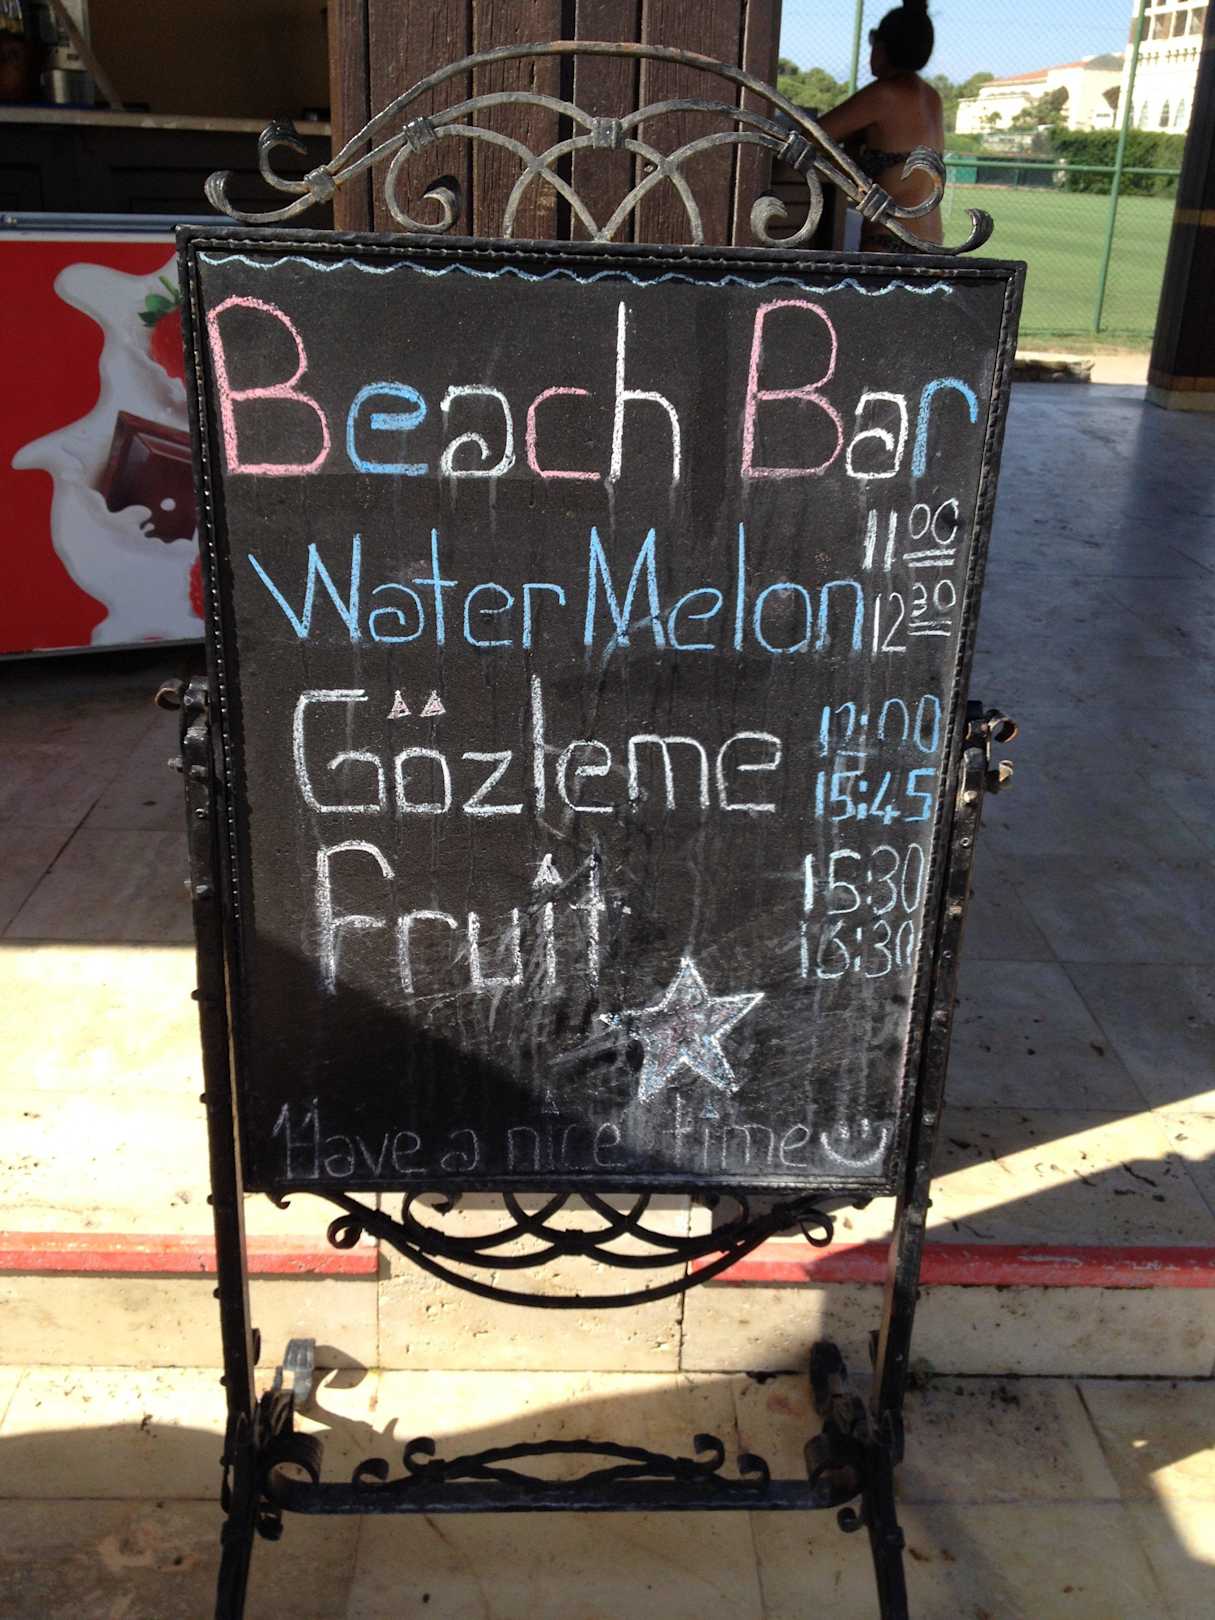 Beach Bar
Water Melon 11 00
12 30
Gözleme 12:00
15:45
Fruit 15:30
Have a nice time